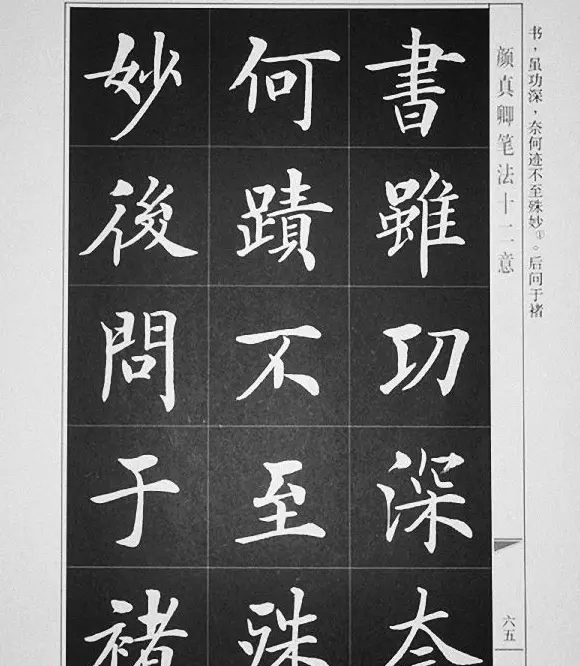 书，虽功深，奈何迹不至殊妙①。后问于褚
颜真卿笔法十二意
六五
書雖功深奈
何蹟不至殊
妙後問于褚